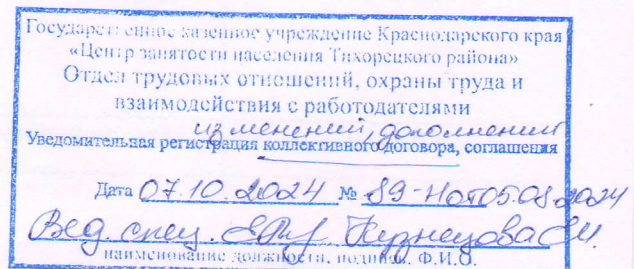 Государственное казенное учреждение Краснодарского края
«Центр занятости населения Тихорецкого района»
Отдел трудовых отношений, охраны труда и
взаимодействия с работодателями
изменений, дополнений
Уведомительная регистрация коллективного договора, соглашения
Дата 07.10.2024 № 89-Н от 05.08.2024
Вед. спец. Кузнецова Е.И.
наименование должности, подпись, Ф.И.О.